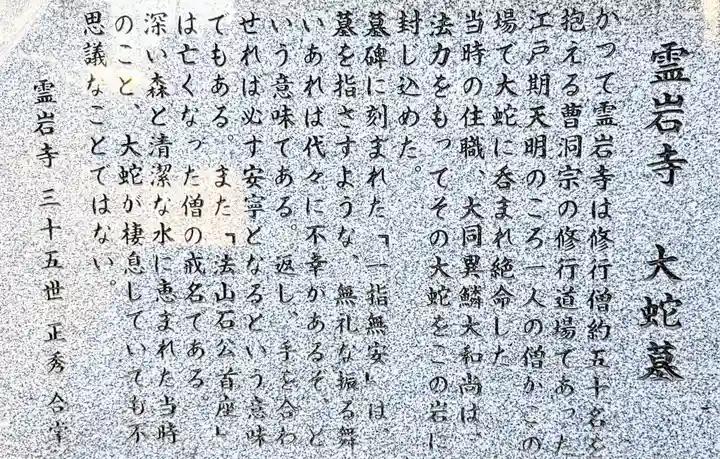 霊岩寺 大蛇墓
かつて霊岩寺は修行僧約五十名を
抱える曹洞宗の修行道場であった
江戸期天明のころ一人の僧がこの
場で大蛇に呑まれ絶命した
当時の住職、大同異鱗大和尚は、
法力をもってその大蛇をこの岩に
封じ込めた。
墓碑に刻まれた「一指無安」は
墓を指さすような、無礼な振る舞
いあれば代々に不幸があるぞ、と
いう意味である。返し、手を合わ
せれば必ず安寧となるという意味
でもある。また「法山石公首座」
は亡くなった僧の戒名である
深い森と清潔な水に恵まれた当時
のこと、大蛇が棲息していても不
思議なことではない。
霊岩寺 三十五世 正秀 合掌